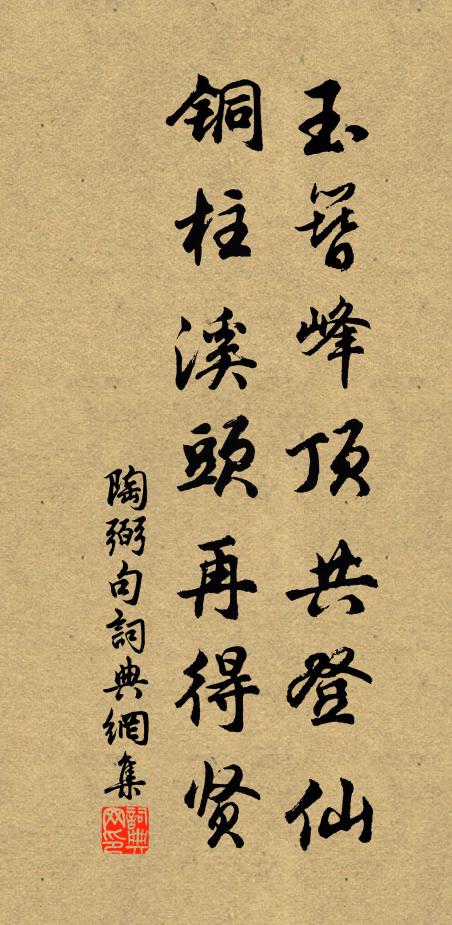 玉簪峰顶共登仙
銅柱溪頭再得贤
陶弼句詞典網集
詞典网印